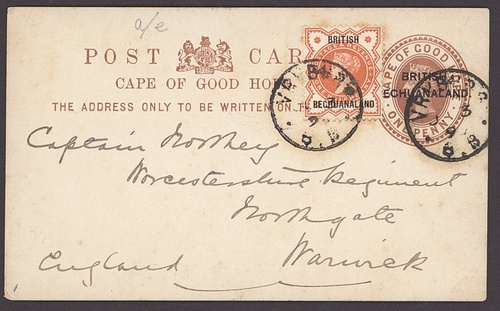 a/e
POST CAR
CAPE OF GOOD HO
THE ADDRESS ONLY TO BE WRITTEN ON T
BRITISH
BECHUANALAND
CAPE OF GOOD
BRITISH
ECHUANALAND
ONE PENNY
VRYBURG
B.B
VRYBURG
B.B
Captain Northey
Worcestershire Regiment
Northgate
Warwick
England